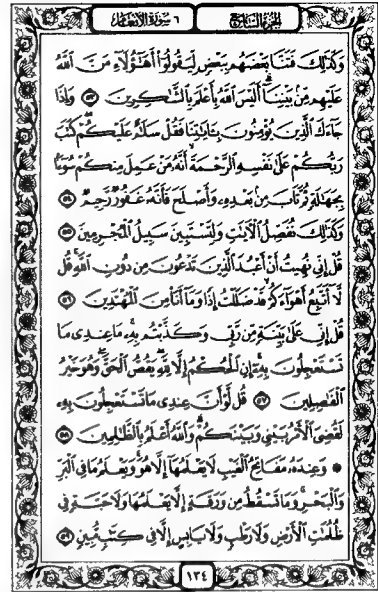 الجزء السابع
٦ سورة الأنعام
وَكَذَٰلِكَ فَتَنَّا بَعْضَهُم بِبَعْضٍ لِّيَقُولُوٓا۟ أَهَٰٓؤُلَآءِ مَنَّ ٱللَّهُ
عَلَيْهِم مِّنۢ بَيْنِنَآ أَلَيْسَ ٱللَّهُ بِأَعْلَمَ بِٱلشَّٰكِرِينَ ٥٣ وَإِذَا
جَآءَكَ ٱلَّذِينَ يُؤْمِنُونَ بِـَٔايَٰتِنَا فَقُلْ سَلَٰمٌ عَلَيْكُمْ كَتَبَ
رَبُّكُمْ عَلَىٰ نَفْسِهِ ٱلرَّحْمَةَ أَنَّهُۥ مَنْ عَمِلَ مِنكُمْ سُوٓءًۢا
بِجَهَٰلَةٍ ثُمَّ تَابَ مِنۢ بَعْدِهِۦ وَأَصْلَحَ فَأَنَّهُۥ غَفُورٌ رَّحِيمٌ ٥٤
وَكَذَٰلِكَ نُفَصِّلُ ٱلْءَايَٰتِ وَلِتَسْتَبِينَ سَبِيلُ ٱلْمُجْرِمِينَ ٥٥
قُلْ إِنِّى نُهِيتُ أَنْ أَعْبُدَ ٱلَّذِينَ تَدْعُونَ مِن دُونِ ٱللَّهِ قُل
لَّآ أَتَّبِعُ أَهْوَآءَكُمْ قَدْ ضَلَلْتُ إِذًا وَمَآ أَنَا۠ مِنَ ٱلْمُهْتَدِينَ ٥٦
قُلْ إِنِّى عَلَىٰ بَيِّنَةٍ مِّن رَّبِّى وَكَذَّبْتُم بِهِۦ مَا عِندِى مَا
تَسْتَعْجِلُونَ بِهِۦٓ إِنِ ٱلْحُكْمُ إِلَّا لِلَّهِ يَقُصُّ ٱلْحَقَّ وَهُوَ خَيْرُ
ٱلْفَٰصِلِينَ ٥٧ قُل لَّوْ أَنَّ عِندِى مَا تَسْتَعْجِلُونَ بِهِۦ
لَقُضِىَ ٱلْأَمْرُ بَيْنِى وَبَيْنَكُمْ وَٱللَّهُ أَعْلَمُ بِٱلظَّٰلِمِينَ ٥٨
۞ وَعِندَهُۥ مَفَاتِحُ ٱلْغَيْبِ لَا يَعْلَمُهَآ إِلَّا هُوَ وَيَعْلَمُ مَا فِى ٱلْبَرِّ
وَٱلْبَحْرِ وَمَا تَسْقُطُ مِن وَرَقَةٍ إِلَّا يَعْلَمُهَا وَلَا حَبَّةٍ فِى
ظُلُمَٰتِ ٱلْأَرْضِ وَلَا رَطْبٍ وَلَا يَابِسٍ إِلَّا فِى كِتَٰبٍ مُّبِينٍ ٥٩
١٣٤